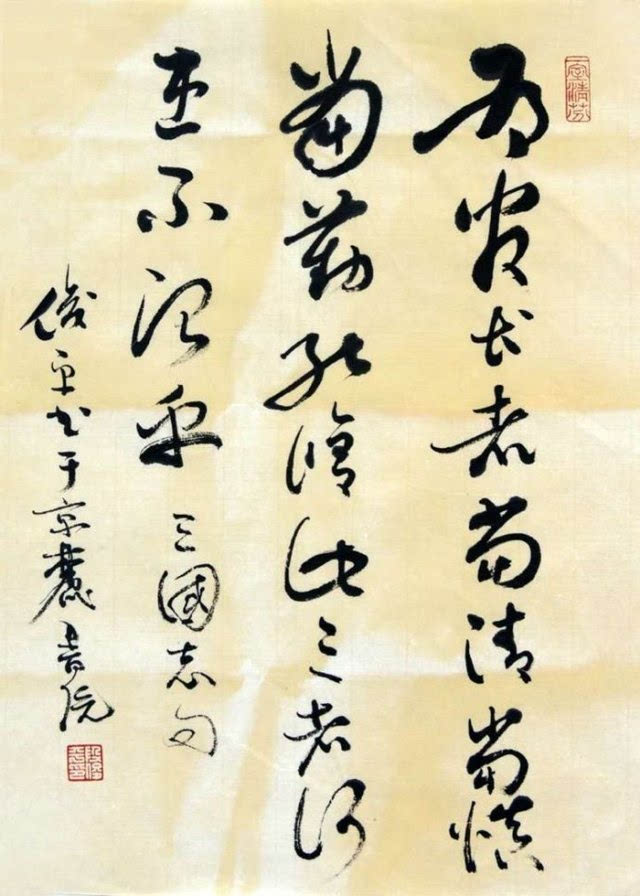 一室清芬
為官長者當清當慎
當勤能修此三者何
患不治乎 三國志句
俊平书于京麓書院